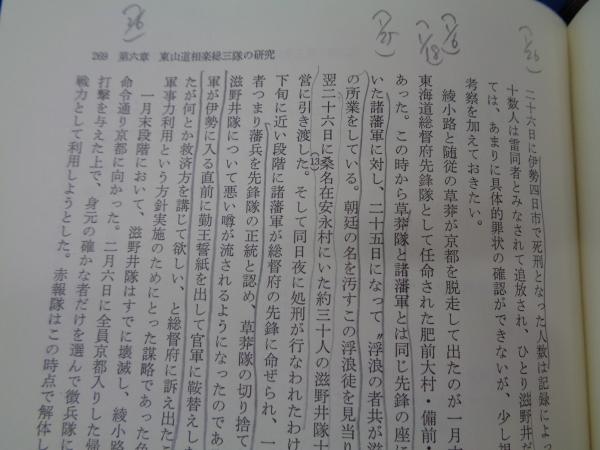 269 第六章 東山道相楽総三隊の研究
二十六日に伊勢四日市で死刑となった人数は記録によっ
十数人は雷同者とみなされて追放され、ひとり滋野井だ
ては、あまりに具体的罪状の確認ができないが、少し
考察を加えておきたい。
綾小路と随従の草莽が京都を脱走して出たのが一月
東海道総督府先鋒隊として任命された肥前大村・備前・
あった。この時から草莽隊と諸藩軍とは同じ先鋒の座に
いた諸藩軍に対し、二十五日になって〝浮浪の者共が
の所業をしている。朝廷の名を汚すこの浮浪徒を見当り
翌二十六日に桑名在安永村にいた約三十人の滋野井隊士
営に引き渡した。そして同日夜に処刑が行なわれたわけ
(13)
下旬に近い段階に諸藩軍が総督府の先鋒に命ぜられ、一
者つまり藩兵を先鋒隊の正統と認め、草莽隊の切り捨て
滋野井隊について悪い噂が流されるようになったのであ
軍が伊勢に入る直前に勤王誓紙を出して官軍に鞍替えし
たが何とか救済方を講じて欲しい、と総督府に訴え出たこ
軍事力利用という方針実施のためにとった謀略であった
一月末段階において、滋野井隊はすでに壊滅し、綾小路
命令通り京都に向かった。二月六日に全員京都入りした
打撃を与えた上で、身元の確かな者だけを選んで徴兵隊に
戦力として利用しようとした。赤報隊はこの時点で解体し